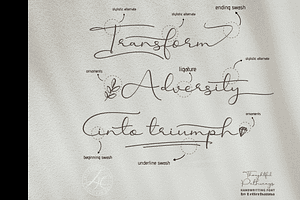 stylistic alternate
stylistic alternate
ending swash
Transform
stylistic alternate
ornaments
ligature
Adversity
ornaments
into triumph
beginning swash
underline swash
Thoughtful
Pathways
HANDWRITING FONT